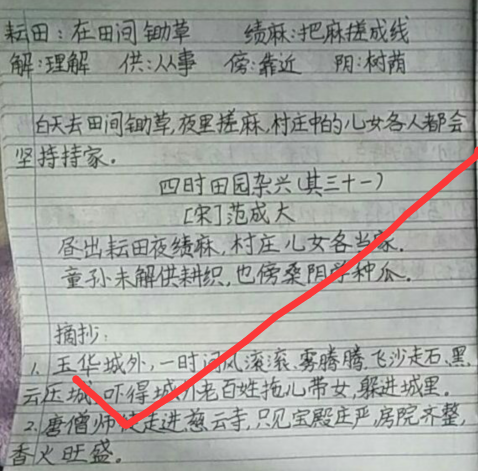 耘田:在田间锄草 绩麻:把麻搓成线
解:理解 供:从事 傍:靠近 阴:树荫
白天去田间锄草,夜里搓麻,村庄中的儿女各人都会
坚持持家。
四时田园杂兴(其三十一)
[宋]范成大
昼出耘田夜绩麻,村庄儿女各当家.
童孙未解供耕织,也傍桑阴学种瓜.
摘抄:
1.玉华城外,一时间风滚滚,雾腾腾,飞沙走石,黑
云压城,吓得城外老百姓拖儿带女,躲进城里。
2.唐僧师徒走进慈云寺,只见宝殿庄严,房院齐整,
香火旺盛。